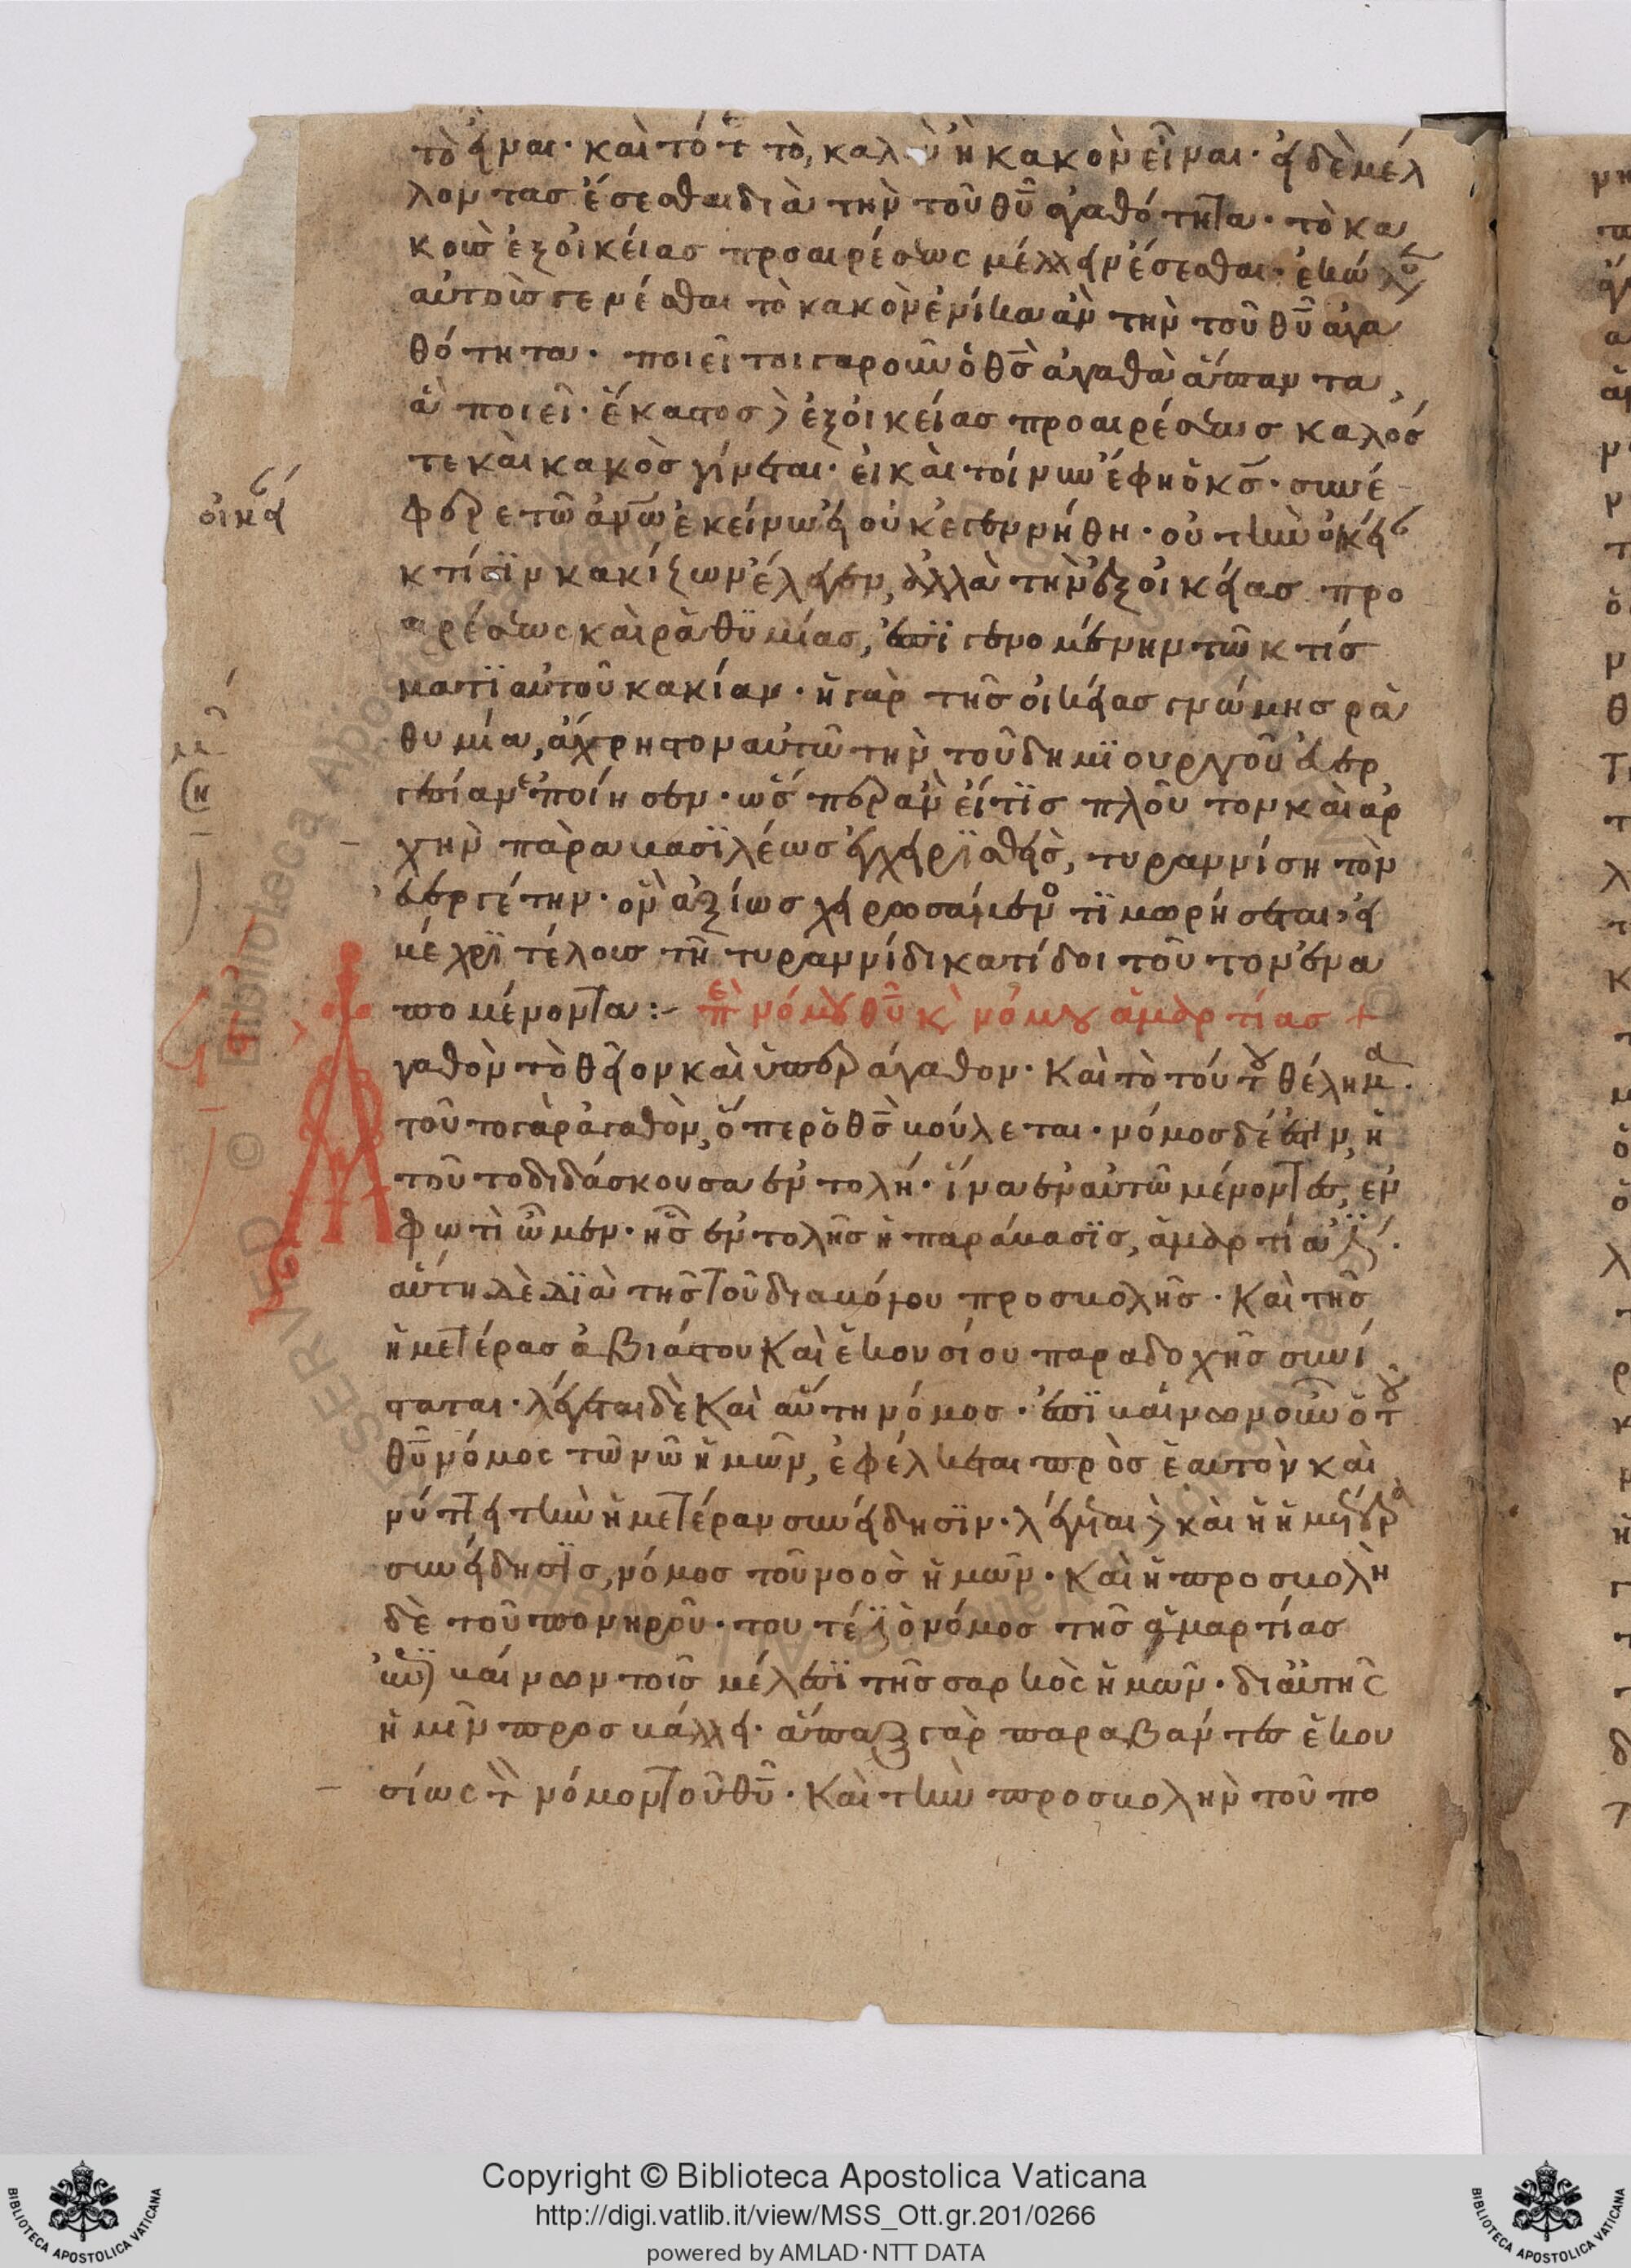 τὸ εἶναι· καὶ τότε τὸ, καλὸν ἢ κακὸν εἶναι· εἰ δὲ μέλ
λοντας ἔσεσθαι διὰ τὴν τοῦ θῦ ἀγαθότητα· τὸ κα
κοὺς ἐξ οἰκείας προαιρέσεως μέλλειν ἔσεσθαι· ἐκώλυσεν
αὐτοὺς γενέσθαι τὸ κακὸν ἐνίκα ἂν τὴν τοῦ θῦ ἀγα
θότητα· ποιεῖ τοιγαροῦν ὁ θς ἀγαθὰ ἅπαντα,
ἃ ποιεῖ· ἕκαστος δὲ ἐξ οἰκείας προαιρέσεως καλός
τε καὶ κακὸς γίνεται· εἰ καὶ τοίνυν ἔφη ὁ κς· συνέ
φερε τῶ ἀνῶ ἐκείνω εἰ οὐκ ἐγεννήθη· οὐ τὴν οἰκεί
κτίσιν κακίζων ἔλεγεν, ἀλλὰ τὴν ἐξ οἰκείας προ
αιρέσεως καὶ ραθυμίας, ἐπιγενομένην τῶ κτίσ
ματι αὐτοῦ κακίαν· ἡ γὰρ τῆς οἰκείας γνώμης ρα
θυμία, ἄχρηστον αὐτῶ τὴν τοῦ δημιουργοῦ εὐερ
γεσίαν ἐποίησεν· ὥσπερ ἂν εἴ τις πλοῦτον καὶ ἀρ
χὴν παρὰ βασιλέως ἐγχειρισθεὶς, τυραννίση τὸν
εὐεργέτην· ὃν ἀξίως χειρωσάμενος τιμωρήσεται, εἰ
μέχρι τέλους τῆ τυραννίδι κατίδοι τοῦτον ἐνα
πομένοντα:-  περὶ νόμου θῦ καὶ νόμου ἁμαρτίας +
Ἀγαθὸν τὸ θεῖον καὶ ὑπεράγαθον· Καὶ τὸ τούτου θέλημα·
τοῦτο γὰρ ἀγαθὸν, ὅπερ ὁ θς βούλεται· νόμος δέ ἐστιν, ἡ
τοῦτο διδάσκουσα ἐντολή· ἵνα ἐν αὐτῶ μένοντες, ἐν
φωτὶ ὦμεν· ἧς ἐντολῆς ἡ παράβασις, ἁμαρτία ἐστί·
αὕτη δὲ διὰ τῆς τοῦ διαβόλου προσβολῆς· Καὶ τῆς
ἡμετέρας ἀβιάστου Καὶ ἑκουσίου παραδοχῆς συνί
σταται· λέγεται δὲ Καὶ αὕτη νόμος· ἐπιβαίνων οὖν ὁ τοῦ
θῦ νόμος τῶ νῶ ἡμῶν, ἐφέλκεται πρὸς ἑαυτὸν καὶ
νύττει τὴν ἡμετέραν συνείδησιν· λέγεται δὲ καὶ ἡ ἡμετέρα
συνείδησις, νόμος τοῦ νοὸς ἡμῶν· Καὶ ἡ προσβολὴ
δὲ τοῦ πονηροῦ· τουτέστιν ὁ νόμος τῆς ἁμαρτίας
ἐπιβαίνων τοῖς μέλεσι τῆς σαρκὸς ἡμῶν· δι αὐτῆς
ἡμῖν προσβάλλει· ἅπαξ γὰρ παραβάντες ἑκου
σίως τὸν νόμον τοῦ θῦ· Καὶ τὴν προσβολὴν τοῦ πο
Copyright © Biblioteca Apostolica Vaticana
http://digi.vatlib.it/view/MSS_Ott.gr.201/0266
powered by AMLAD·NTT DATA
BIBLIOTECA APOSTOLICA VATICANA
BIBLIOTECA APOSTOLICA VATICANA